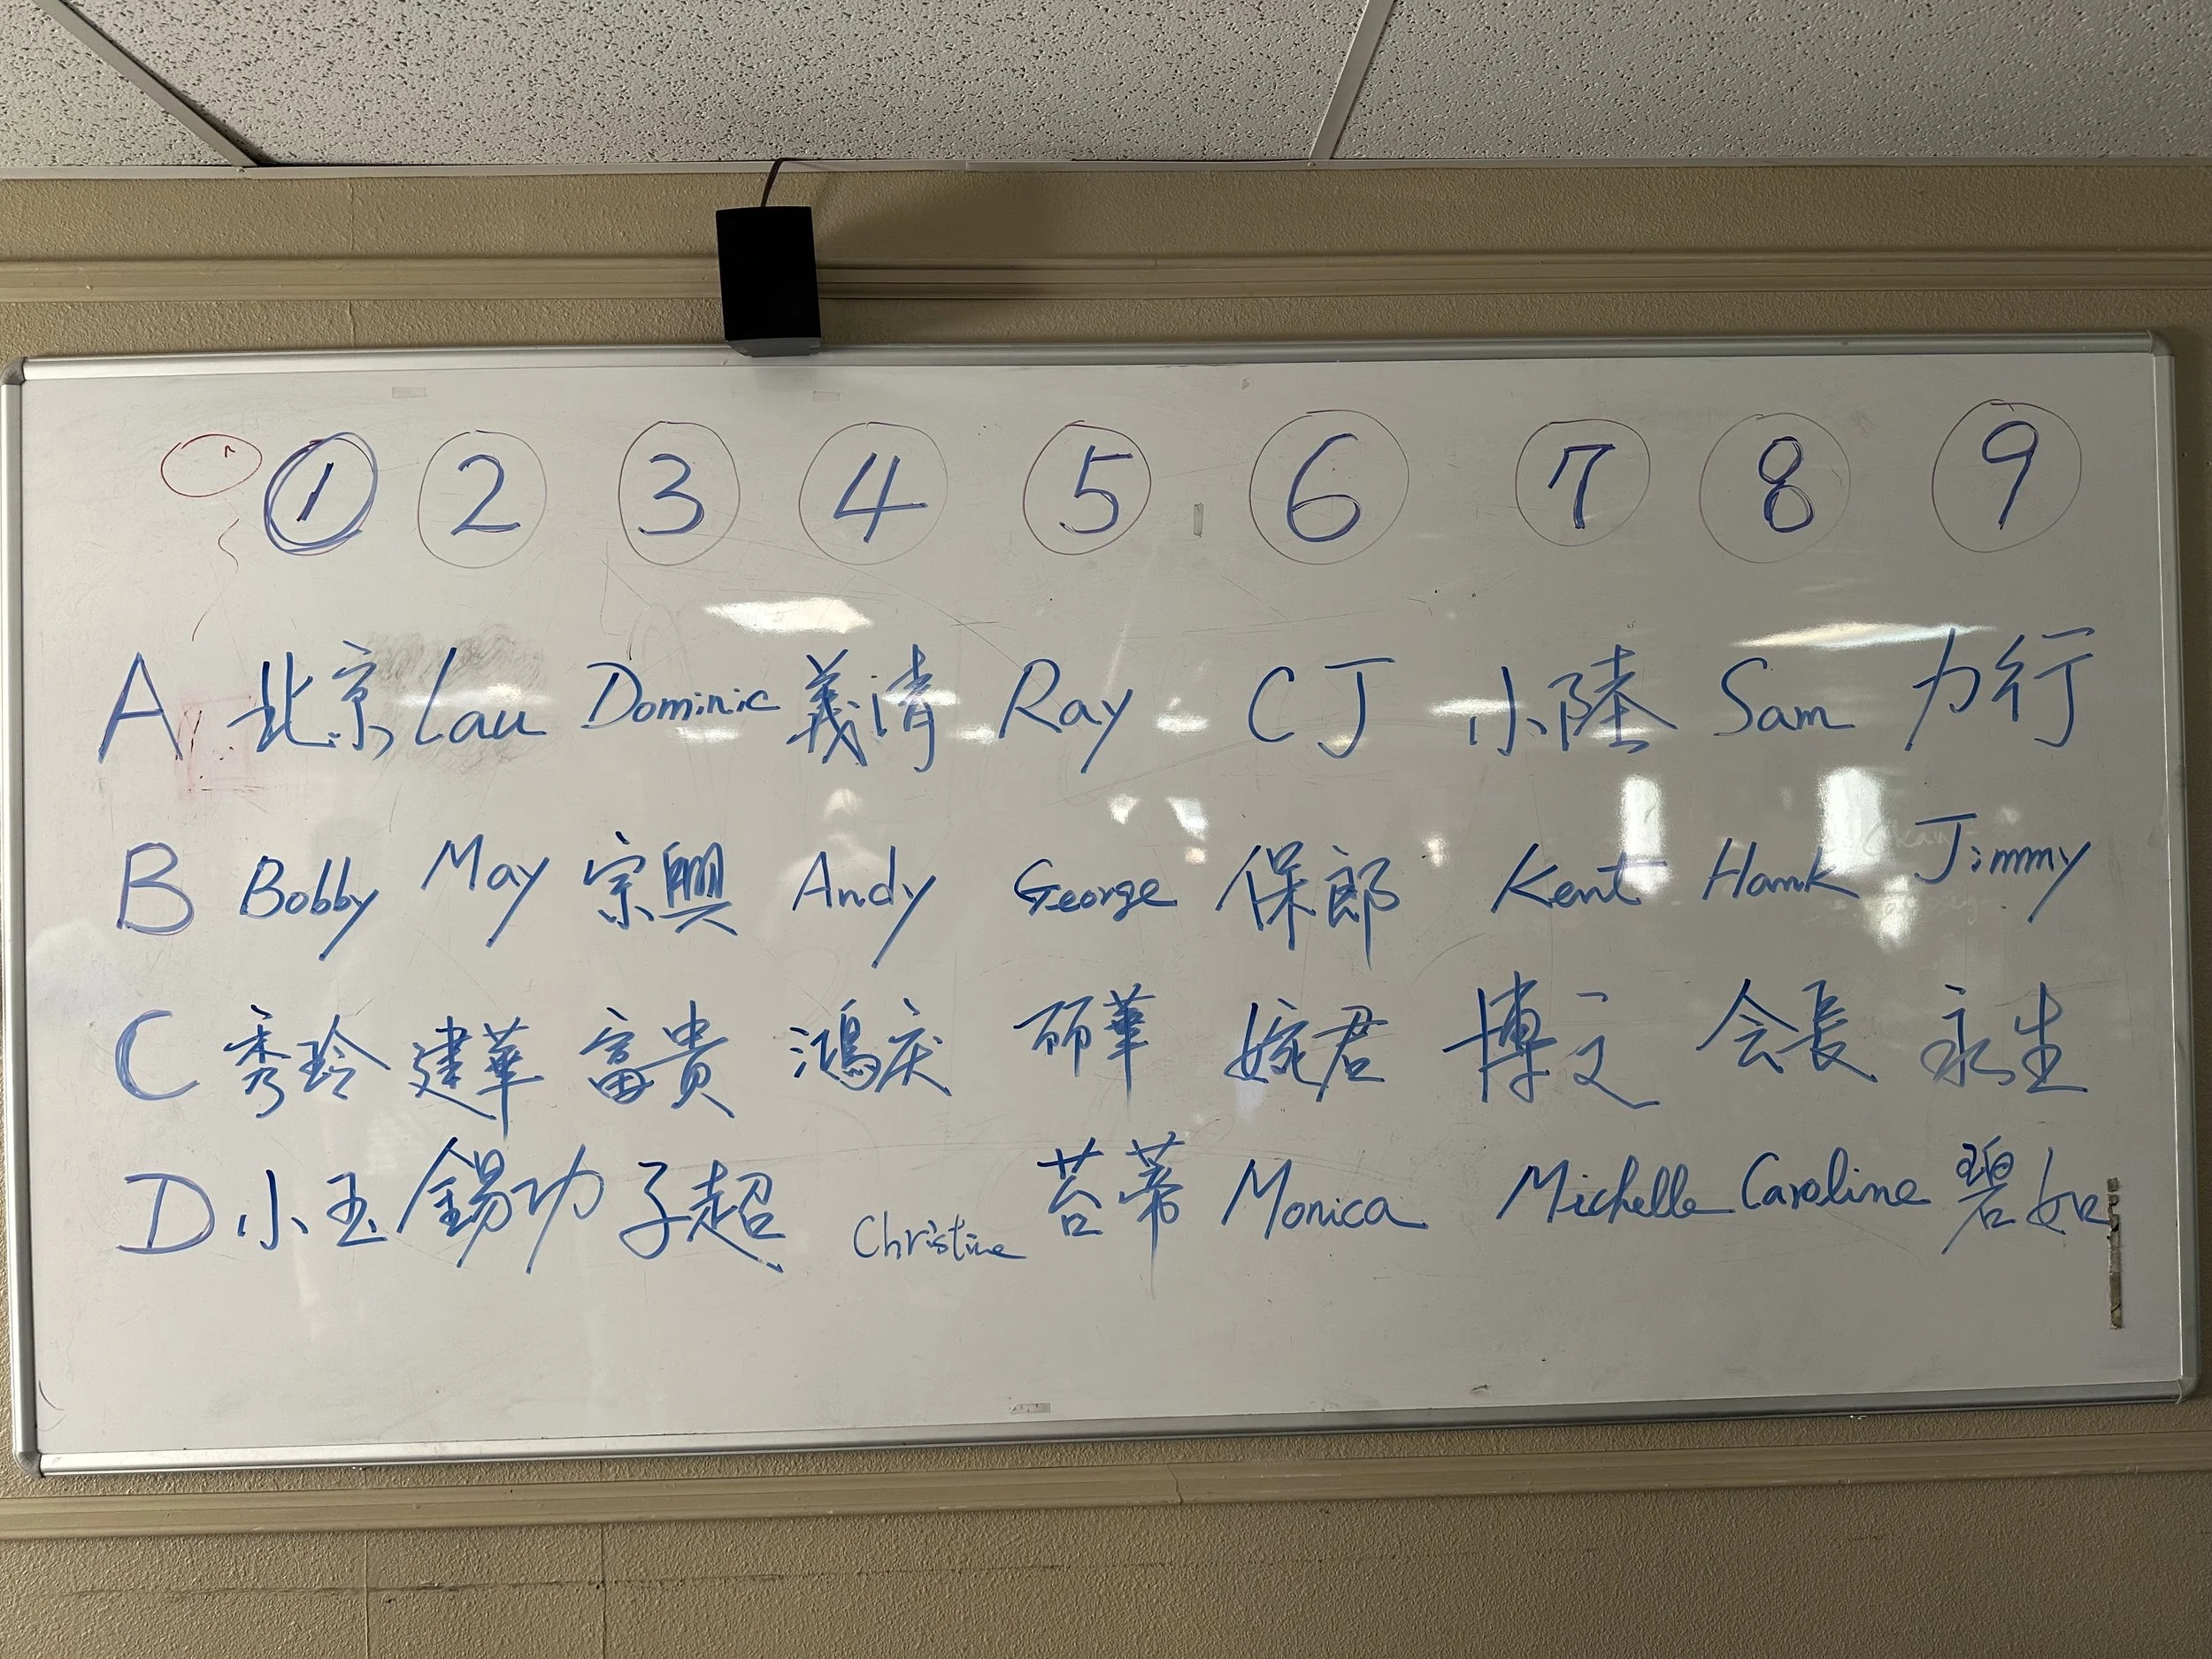 1 2 3 4 5 6 7 8 9
A 北京 Lau Dominic 義清 Ray CJ 小陸 Sam 力行
B Bobby May 宗興 Andy George 保郎 Kent Hank Jimmy
C 秀玲 建華 富貴 鴻庆 丽華 婉君 博文 会長 永生
D 小玉 錫功 子超 Christine 苔蒂 Monica Michelle Caroline 碧如